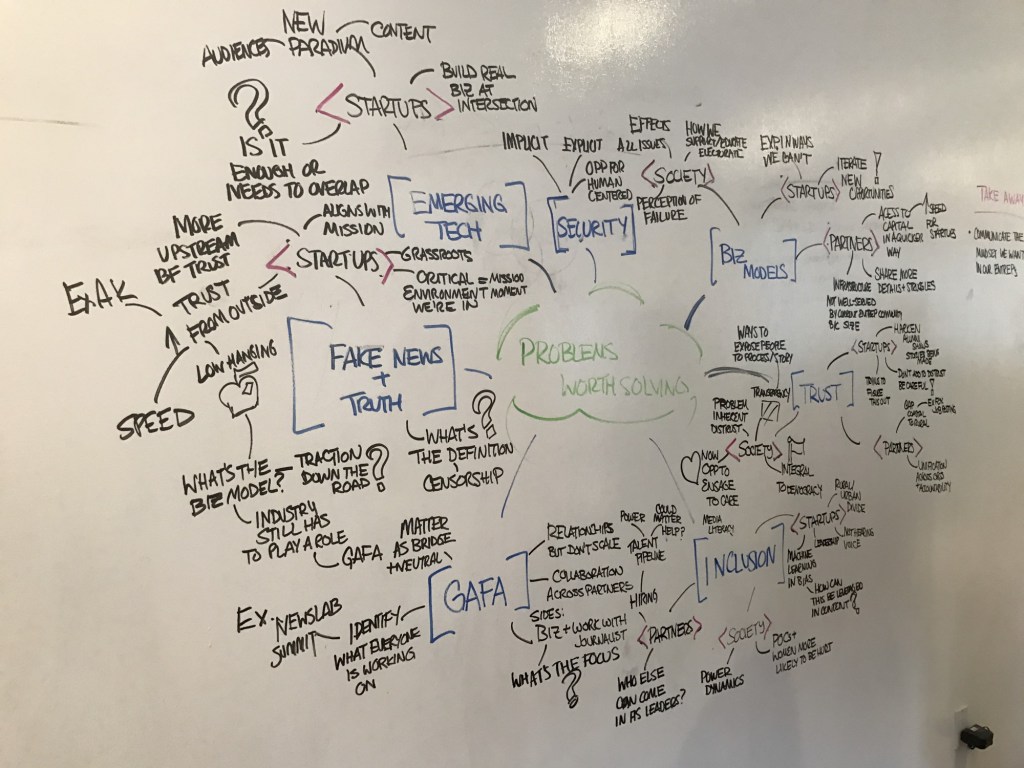 NEW
PARADIUM
AUDIENCES
CONTENT
<STARTUPS>
BUILD REAL
BIZ AT
INTERSECTION
?
IS IT
ENOUGH OR
NEEDS TO OVERLAP
[EMERGING
TECH]
MORE
UPSTREAM
BF TRUST
ALIGNS WITH
MISSION
<STARTUPS>
GRASSROOTS
CRITICAL = MISSION
ENVIRONMENT MOMENT
WE'RE IN
TRUST
FROM OUTSIDE
EX. AK
LOW HANGING
SPEED
[FAKE NEWS
+
TRUTH]
WHAT'S
THE DEFINITION
?
CENSORSHIP
WHAT'S THE
BIZ MODEL?
TRACTION
DOWN THE
ROAD?
INDUSTRY
STILL HAS
TO PLAY A ROLE
GAFA
MATTER
AS BRIDGE
+NEUTRAL
[GAFA]
RELATIONSHIPS
BUT DON'T SCALE
COLLABORATION
ACROSS PARTNERS
SIDES:
BIZ + WORK WITH
JOURNALIST
WHAT'S THE FOCUS
?
IDENTIFY
WHAT EVERYONE
IS WORKING
ON
EX. NEWSLAB
SUMMIT
PROBLEMS
WORTH SOLVING
IMPLICIT
EXPLICIT
OPP FOR
HUMAN
CENTERED
[SECURITY]
EFFECTS
ALL ISSUES
HOW WE
ELECTORATE
<SOCIETY>
PERCEPTION OF
FAILURE
[BIZ
MODELS]
EXP IN WAYS
WE CAN'T
<STARTUPS>
ITERATE
NEW
OPPORTUNITIES
!
<PARTNERS>
ACESS TO
CAPITAL
IN A QUICKER
WAY
SPEED
FOR
STARTUPS
INFRASTRUCTURE
SHARE MORE
DETAILS + STRUGGLES
NOT WELL-SERVED
BY CURRENT ENTREP COMMUNITY
B/C SIZE
TAKE AWAY
• COMMUNICATE THE
MINDSET WE WANT
IN OUR ENTREPS
WAYS TO
EXPOSE PEOPLE
TO PROCESS/STORY
TRANSPARENCY
[TRUST]
<STARTUPS>
HARKEN
DON'T ADD TO DISTRUST
BE CAREFUL!
TRYING TO
FIGURE
THIS OUT
<PARTNERS>
UNIFICATION
ACROSS
PROBLEM
INHERENT
DISTRUST
<SOCIETY>
INTEGRAL
TO DEMOCRACY
NOW
OPP TO
ENGAGE
TO CARE
MEDIA
LITERACY
[INCLUSION]
<STARTUPS>
RURAL
URBAN
DIVIDE
NOT HEARING
VOICE
LEADERSHIP
MACHINE
LEARNING
IN BIAS
HOW CAN
THIS BE
IN CONTENT?
POWER
COULD
MATTER
HELP?
TALENT
PIPELINE
HIRING
<PARTNERS>
WHO ELSE
CAN COME
IN AS LEADERS?
<SOCIETY>
POWER
DYNAMICS
POC'S +
WOMEN MORE
LIKELY TO BE HURT